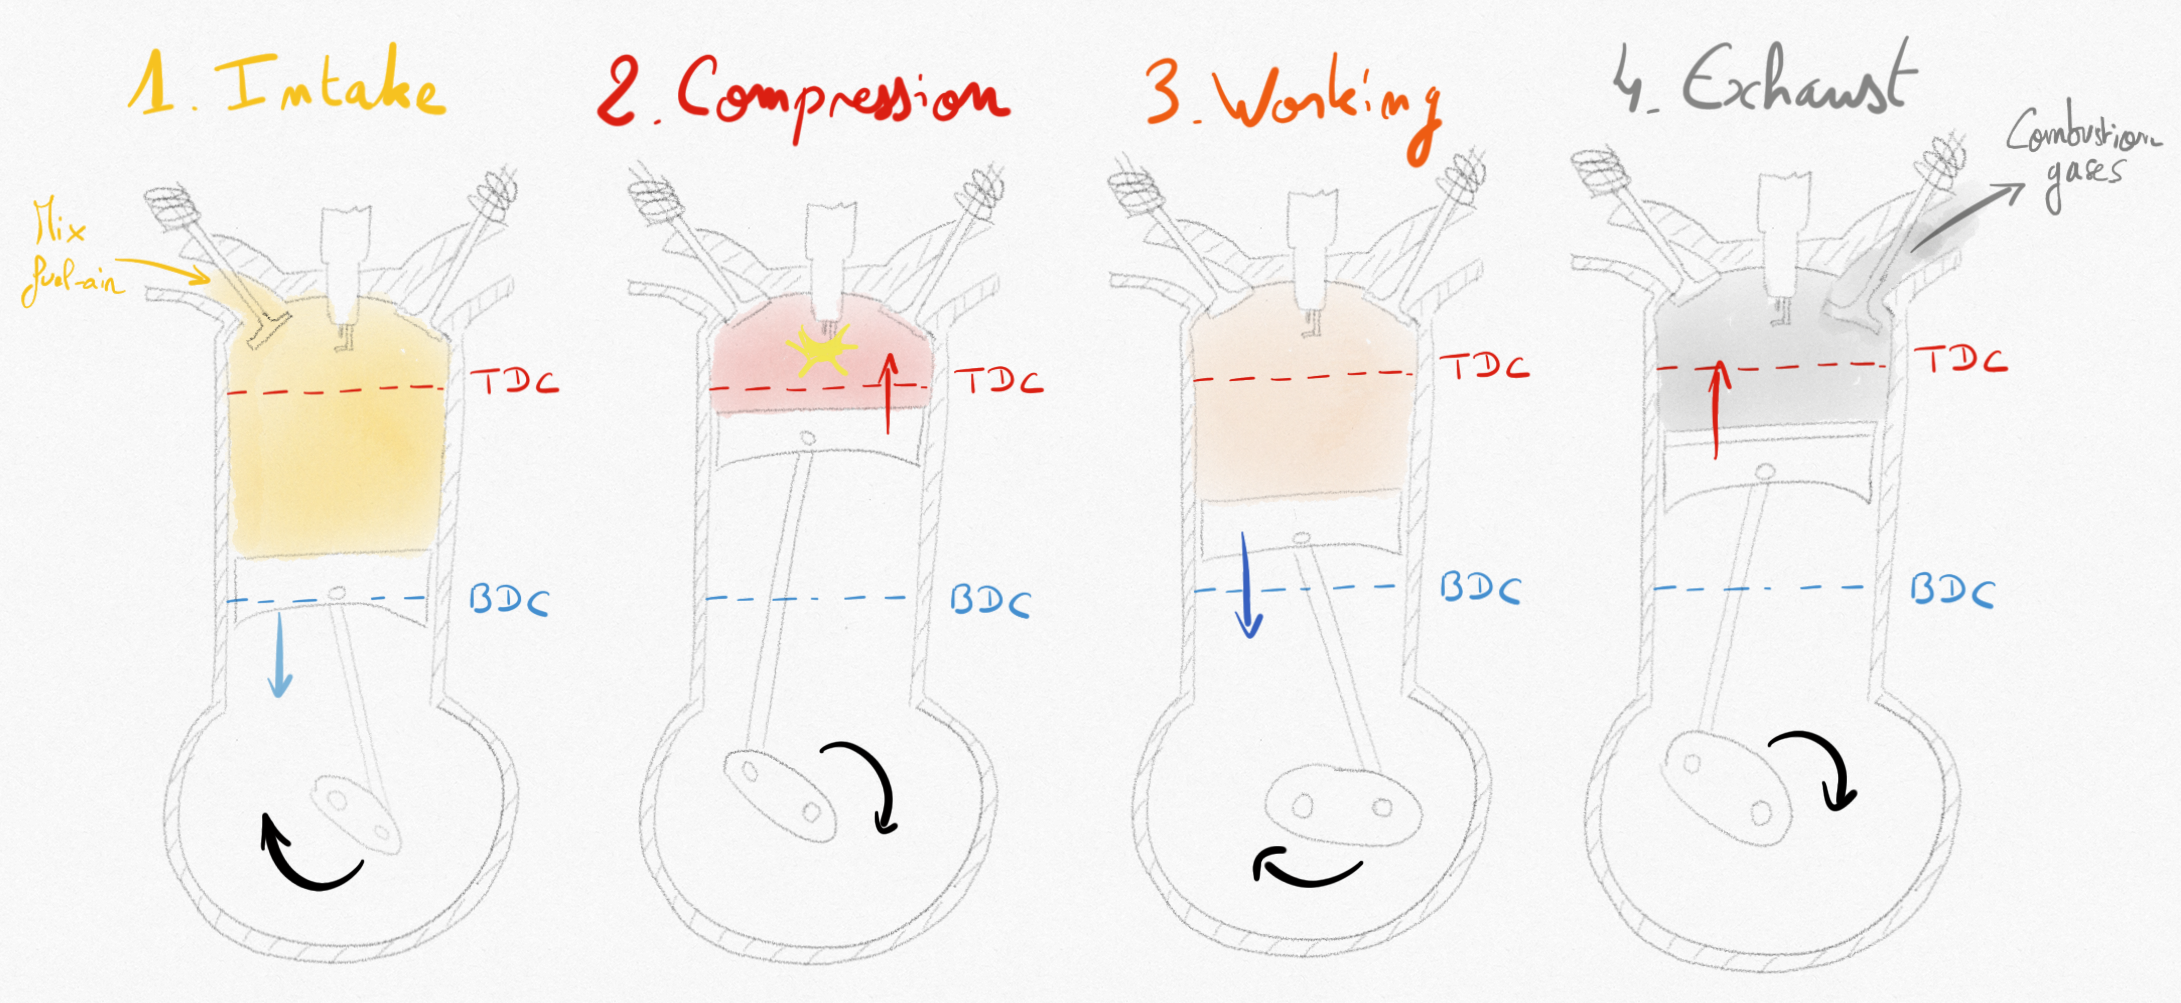 1. Intake
Mix
fuel-air
TDC
BDC
2. Compression
TDC
BDC
3. Working
TDC
BDC
4. Exhaust
Combustion
gases
TDC
BDC